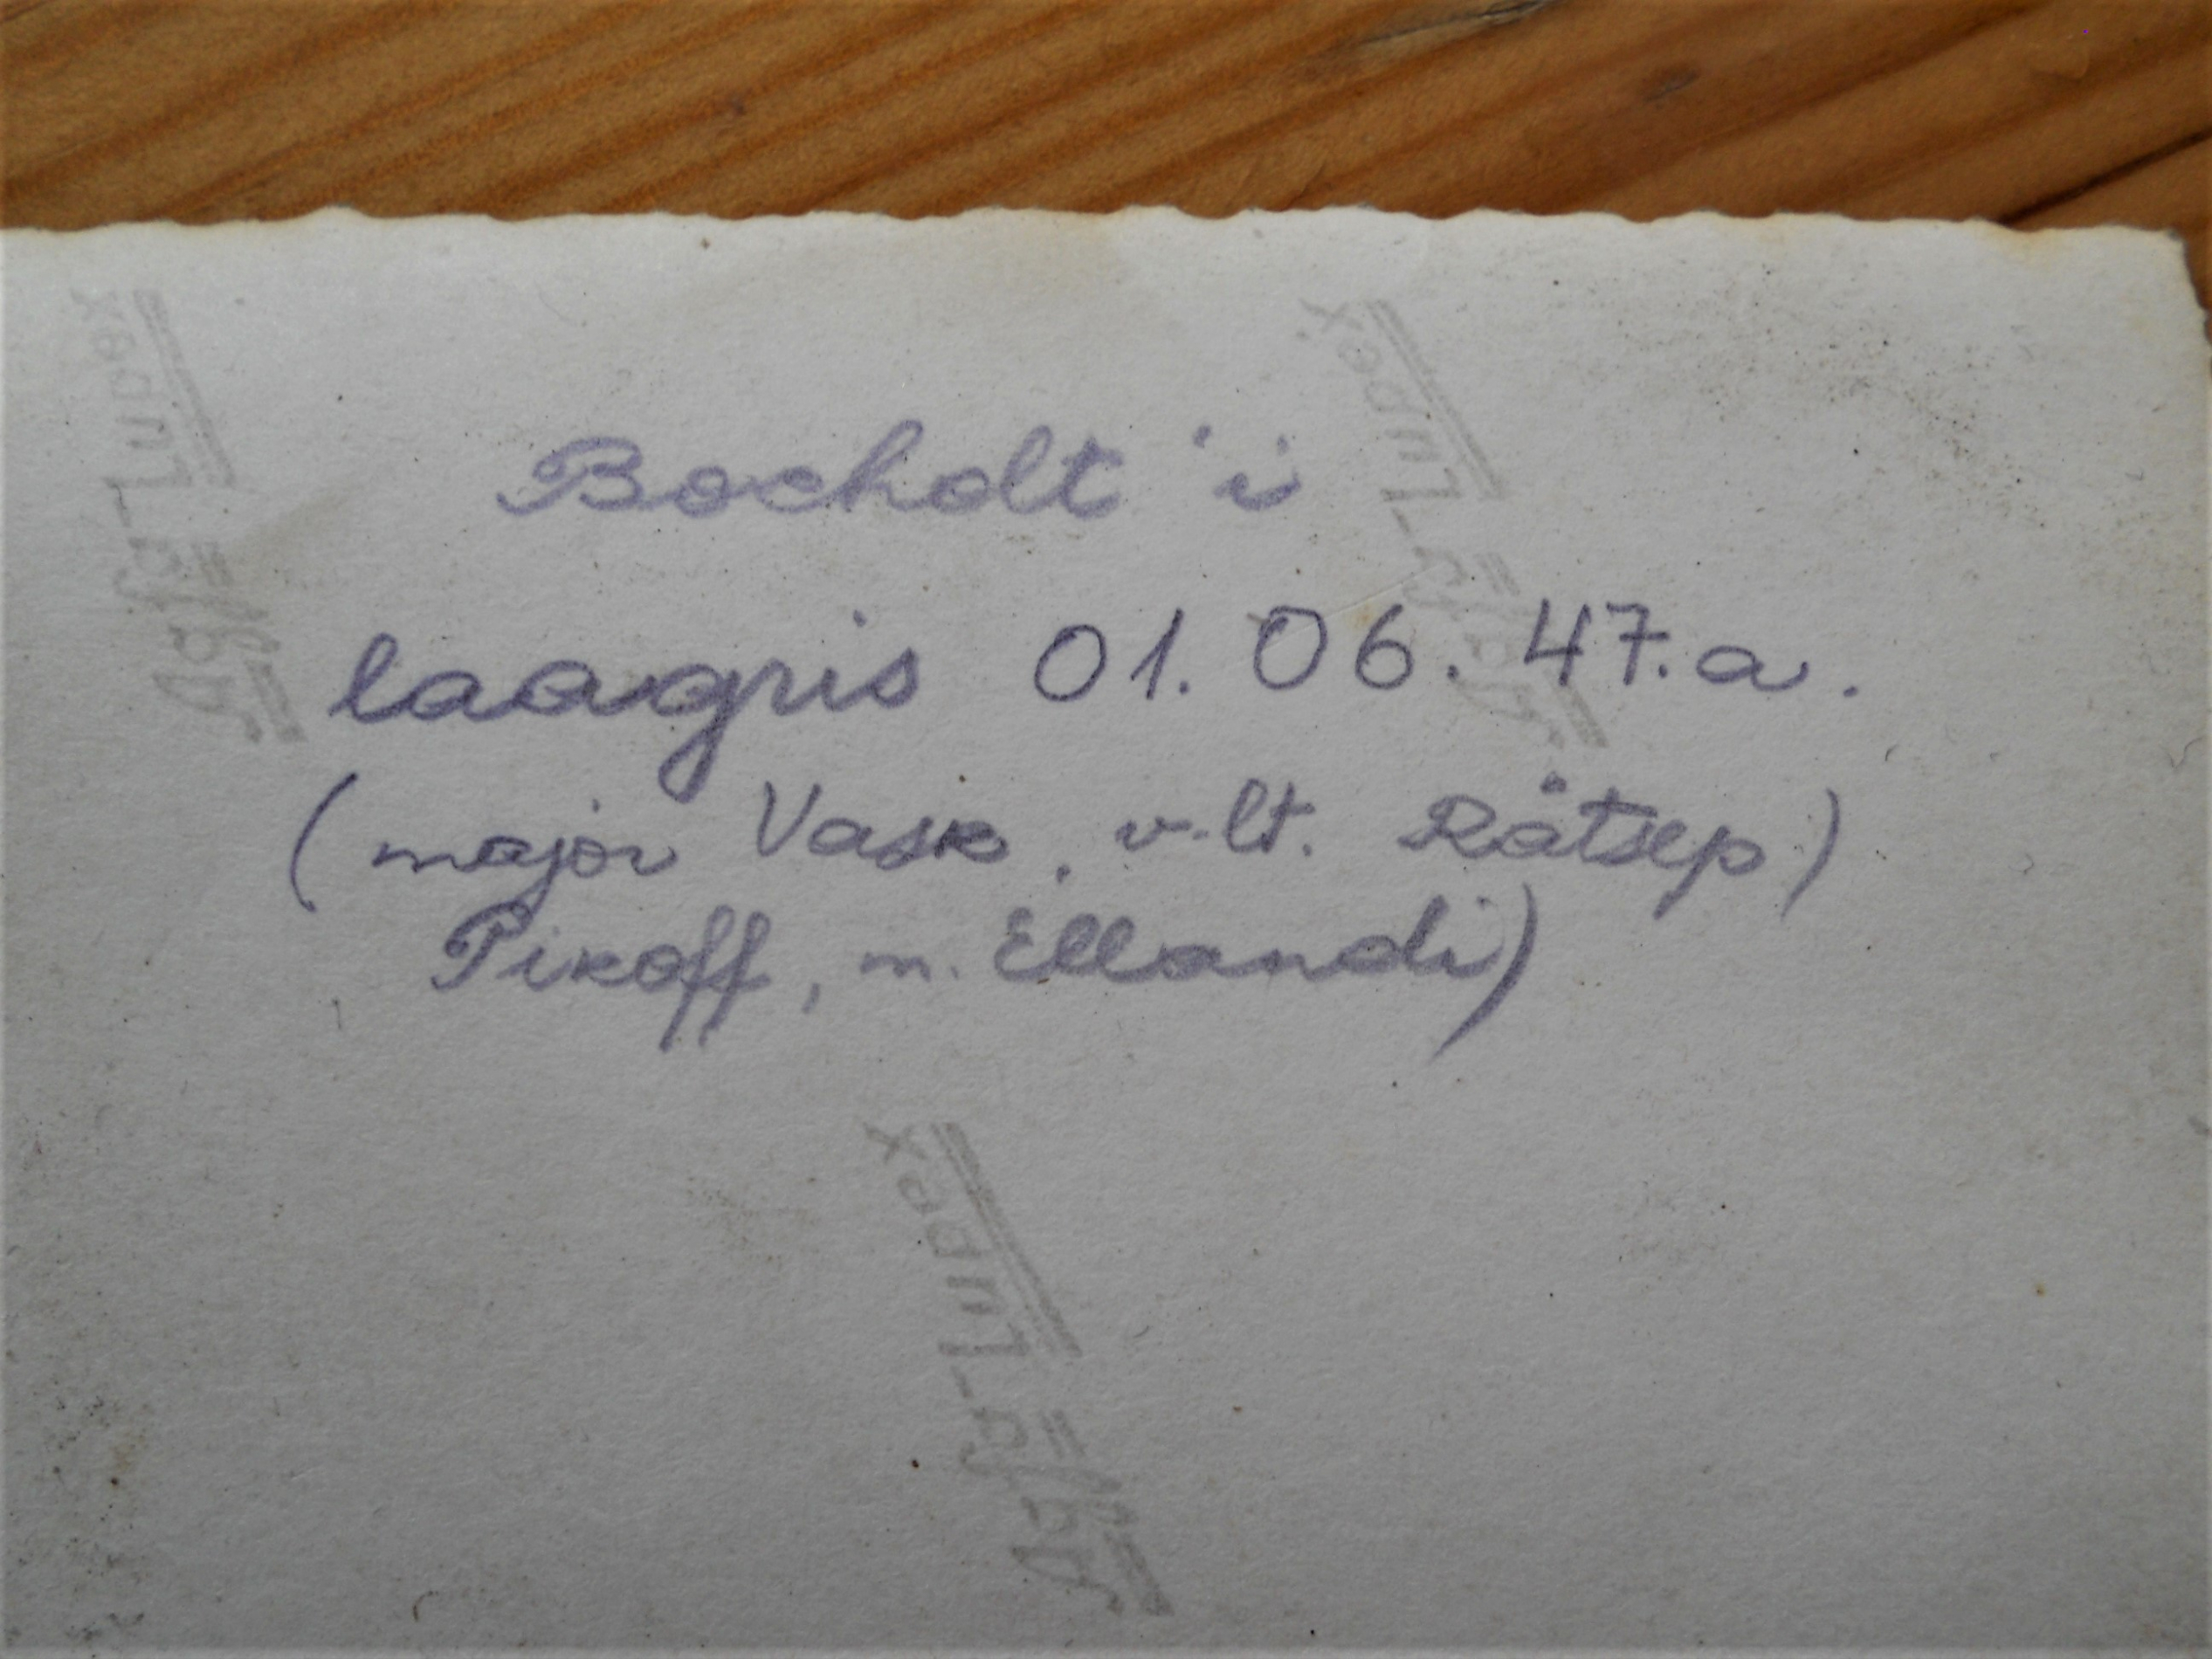 Bocholt'i
laagris 01. 06. 47. a.
(major Vask, v-lt. Rätsep)
Pikoff, m. Ellandi)
Agfa-Lupex
Agfa-Lupex
Agfa-Lupex